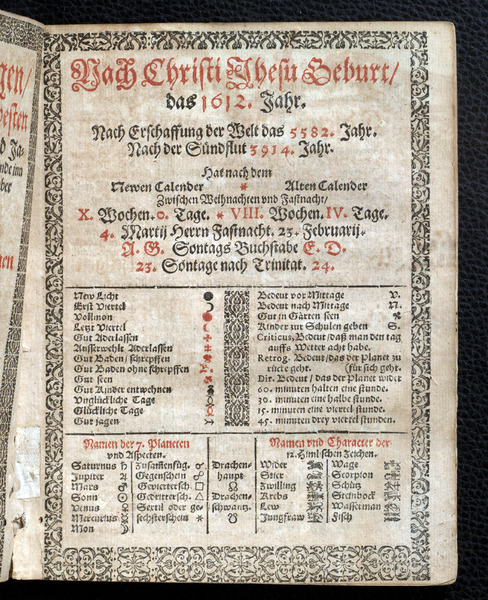 gen/
besten
d Ja-
nde im
ber
nen
Nach Christi Jhesu Geburt/
das 1612. Jahr.
Nach Erschaffung der Welt das 5582. Jahr.
Nach der Sündflut 3914. Jahr.
Hat nach dem
Newen Calender * Alten Calender
Zwischen Weihnachten und Fastnacht/
X. Wochen. 0. Tage. * VIII. Wochen. IV. Tage.
4. Martij Herrn Fastnacht. 23. Februarij.
A. G. Sontags Buchstabe E. D.
23. Sontage nach Trinitat. 24.
New Liecht ●
Erst Viertel ☽
Vollmon
Letzt Viertel ☾
Gut Aderlassen
Ausserwehlt Aderlassen
Gut Baden/ schrepffen
Gut Baden ohne schrepffen
Gut seen
Gut Kinder entwehnen
Unglückliche Tage
Glückliche Tage
Gut jagen
Bedeut vor Mittage V.
Bedeut nach Mittage N.
Gut in Gärten seen
Kinder zur Schulen geben S.
Criticus, Bedeut/ daß man den tag
auffs Wetter acht habe.
Retrog. Bedeut/ das der Planet zu
rücke geht. (für sich geht.
Dir. Bedeut/ das der Planet wider
60. minuten halten eine stunde.
30. minuten eine halbe stunde.
15. minuten eine viertel stunde.
45. minuten drey viertel stunden.
Namen der 7. Planeten
und Aspecten.
Saturnus ♄ Zusamenfüg. ☌
Jupiter ♃ Gegenschein ☍
Mars ♂ Gevierdtsch. □
Sonn ☉ Gedrittersch. △
Venus ♀ Sextil oder ge-
Mercurius ☿ sechsterschein ✶
Mon
Drachen-
haupt
☊
Drachen-
schwantz.
☋
Namen und Character der
12. Himlischen Zeichen.
Wider Wage
Stier Scorpion
Zwilling Schütz
Krebs Steinbock
Lew Wasserman
Jungfraw Fisch